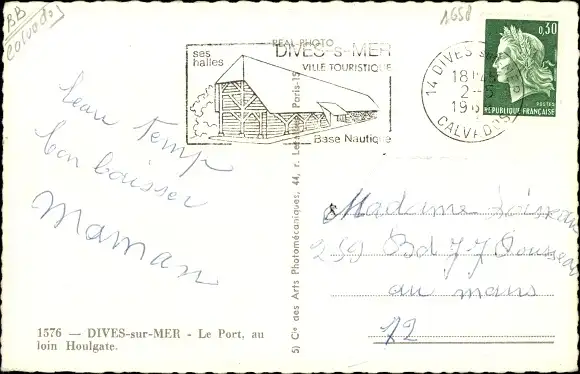 BB
Calvados
1658
REAL PHOTO
ses
halles
DIVES-s-MER
VILLE TOURISTIQUE
Base Nautique
14 DIVES sur MER
18H
2-5
19
CALVADOS
0,30
POSTES
REPUBLIQUE FRANÇAISE
beau temp
bon baisser
Maman
5) Cie des Arts Photomécaniques, 44, r. Paris-15
Madame
259 Bd JJ Rousseau
au mans
72
1576 — DIVES-sur-MER - Le Port, au
loin Houlgate.